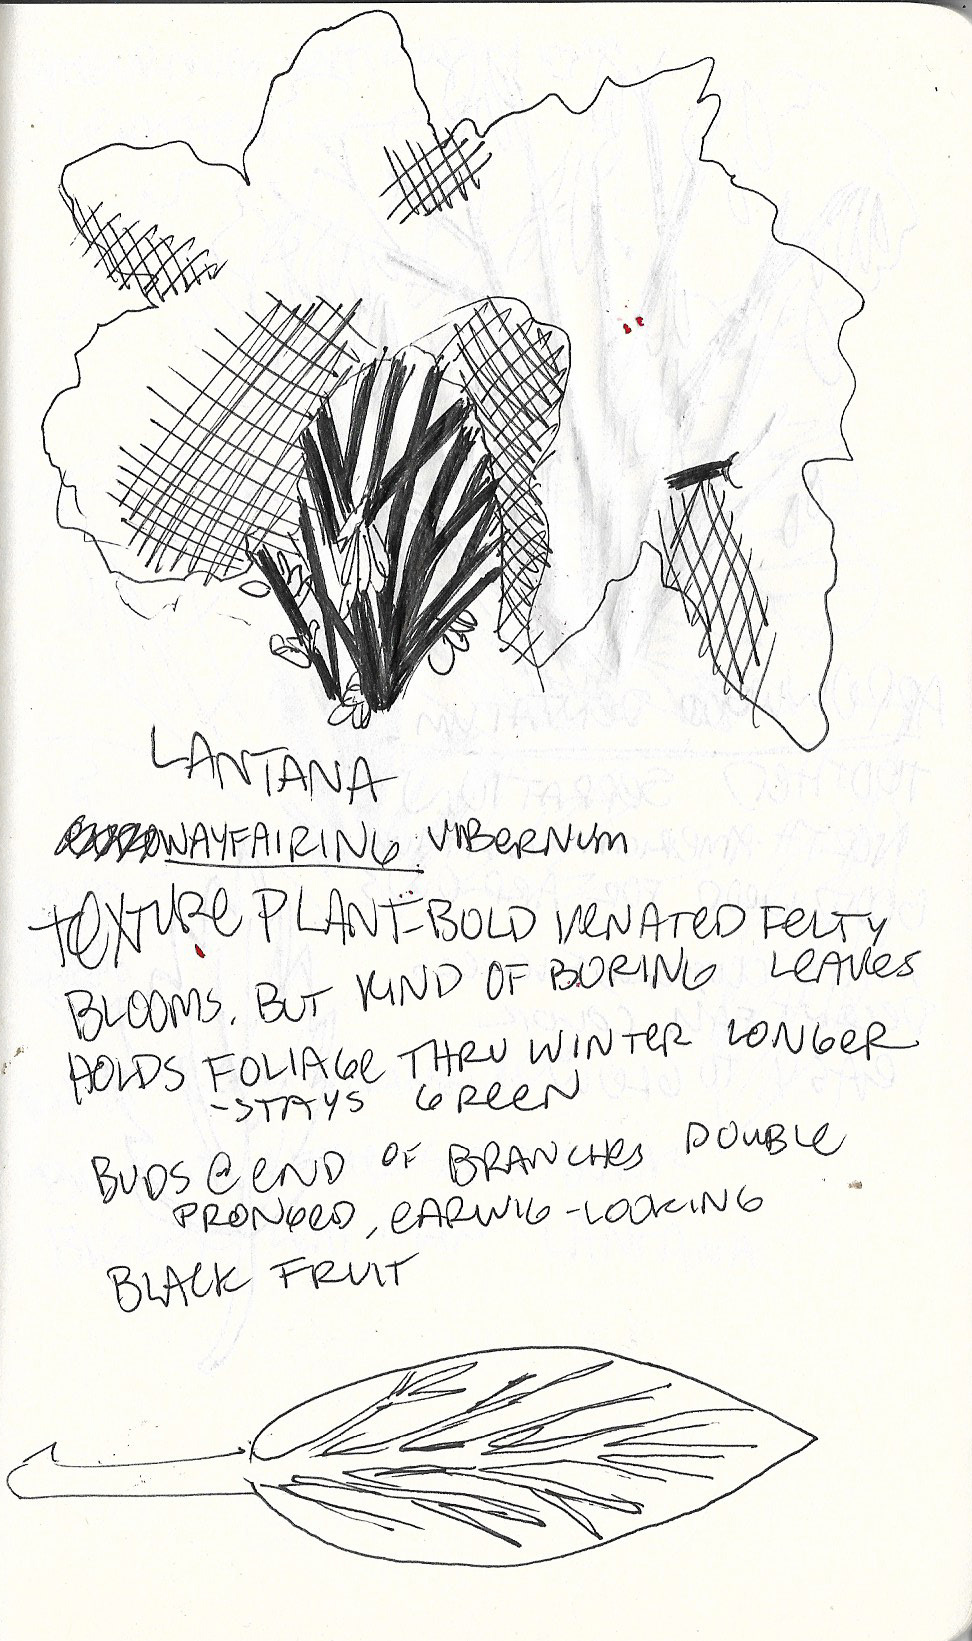 LANTANA
WAYFAIRING VIBERNUM
TEXTURE PLANT-BOLD VENATED FELTY
BLOOMS, BUT KIND OF BORING LEAVES
HOLDS FOLIAGE THRU WINTER LONGER
-STAYS GREEN
BUDS @ END OF BRANCHES DOUBLE
PRONGED, EARWIG-LOOKING
BLACK FRUIT